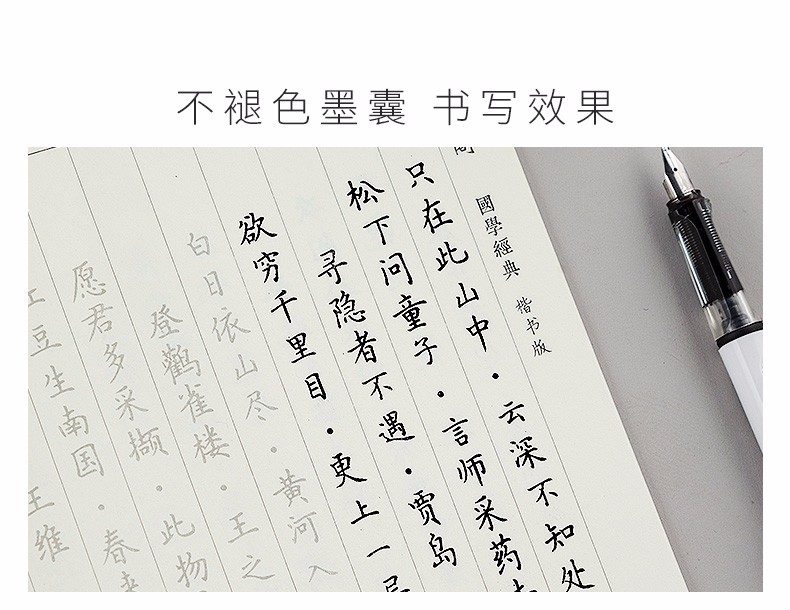 不褪色墨囊 书写效果
國學經典 楷书版
只在此山中·云深不知处
松下问童子·言师采药
寻隐者不遇·贾岛
欲穷千里目·更上一
白日依山尽·黄河入
登鹳雀楼·王之
愿君多采撷·此物
豆生南国·春来
王维